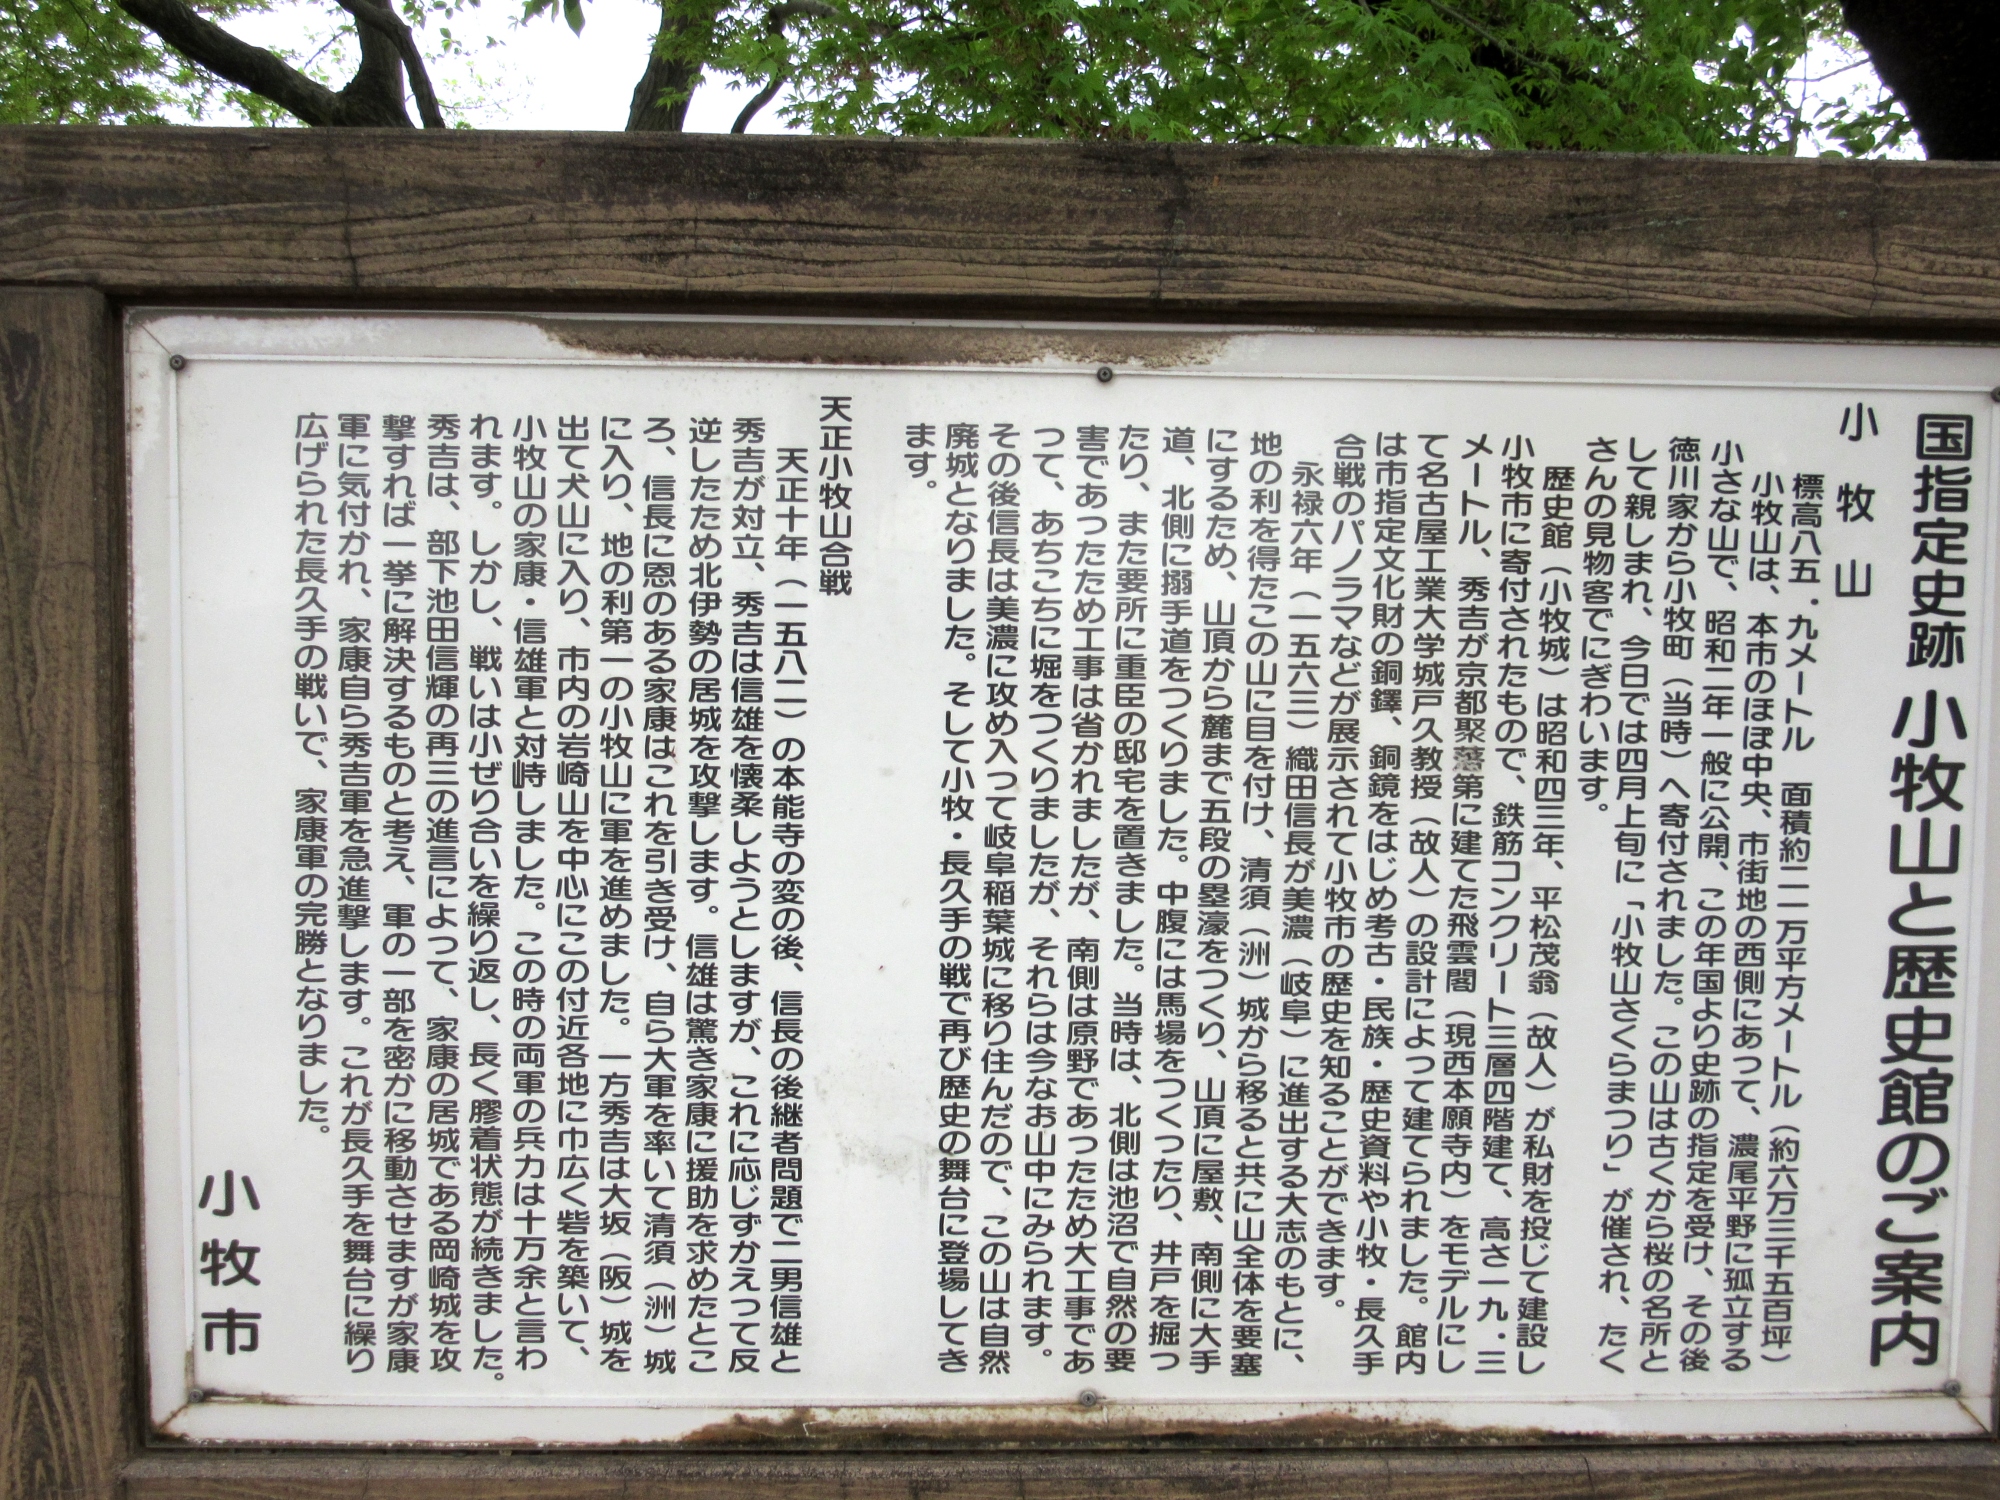 国指定史跡 小牧山と歴史館のご案内
小牧山
標高八五・九メートル 面積約二一万平方メートル（約六万三千五百坪）
小牧山は、本市のほぼ中央、市街地の西側にあって、濃尾平野に孤立する
小さな山で、昭和二年一般に公開、この年国より史跡の指定を受け、その後
徳川家から小牧町（当時）へ寄付されました。この山は古くから桜の名所と
して親しまれ、今日では四月上旬に「小牧山さくらまつり」が催され、たく
さんの見物客でにぎわいます。
歴史館（小牧城）は昭和四三年、平松茂翁（故人）が私財を投じて建設し
小牧市に寄付されたもので、鉄筋コンクリート三層四階建て、高さ一九・三
メートル、秀吉が京都聚落第に建てた飛雲閣（現西本願寺内）をモデルにし
て名古屋工業大学城戸久教授（故人）の設計によって建てられました。館内
は市指定文化財の銅鐸、銅鏡をはじめ考古・民族・歴史資料や小牧・長久手
合戦のパノラマなどが展示されて小牧市の歴史を知ることができます。
永禄六年（一五六三）織田信長が美濃（岐阜）に進出する大志のもとに、
地の利を得たこの山に目を付け、清須（洲）城から移ると共に山全体を要塞
にするため、山頂から麓まで五段の塁濠をつくり、山頂に屋敷、南側に大手
道、北側に搦手道をつくりました。中腹には馬場をつくったり、井戸を掘っ
たり、また要所に重臣の邸宅を置きました。当時は、北側は池沼で自然の要
害であったため工事は省かれましたが、南側は原野であったため大工事であ
って、あちこちに堀をつくりましたが、それらは今なお山中にみられます。
その後信長は美濃に攻め入って岐阜稲葉城に移り住んだので、この山は自然
廃城となりました。そして小牧・長久手の戦で再び歴史の舞台に登場してき
ます。
天正小牧山合戦
天正十年（一五八二）の本能寺の変の後、信長の後継者問題で二男信雄と
秀吉が対立、秀吉は信雄を懐柔しようとしますが、これに応じずかえって反
逆したため北伊勢の居城を攻撃します。信雄は驚き家康に援助を求めたとこ
ろ、信長に恩のある家康はこれを引き受け、自ら大軍を率いて清須（洲）城
に入り、地の利第一の小牧山に軍を進めました。一方秀吉は大坂（阪）城を
出て犬山に入り、市内の岩崎山を中心にこの付近各地に巾広く砦を築いて、
小牧山の家康・信雄軍と対峙しました。この時の両軍の兵力は十万余と言わ
れます。しかし、戦いは小ぜり合いを繰り返し、長く膠着状態が続きました。
秀吉は、部下池田信輝の再三の進言によって、家康の居城である岡崎城を攻
撃すれば一挙に解決するものと考え、軍の一部を密かに移動させますが家康
軍に気付かれ、家康自ら秀吉軍を急進撃します。これが長久手を舞台に繰り
広げられた長久手の戦いで、家康軍の完勝となりました。
小牧市